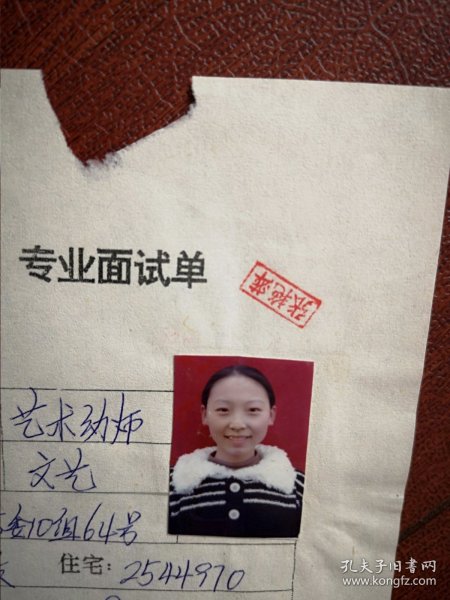 专业面试单
张艳萍
艺术幼师
文艺
委10组64号
住宅：2544970
孔夫子旧书网
www.kongfz.com